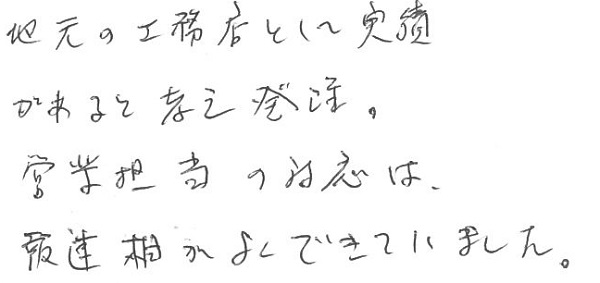 地元の工務店として実績
があると考え発注。
営業担当の対応は、
報連相がよくできていました。